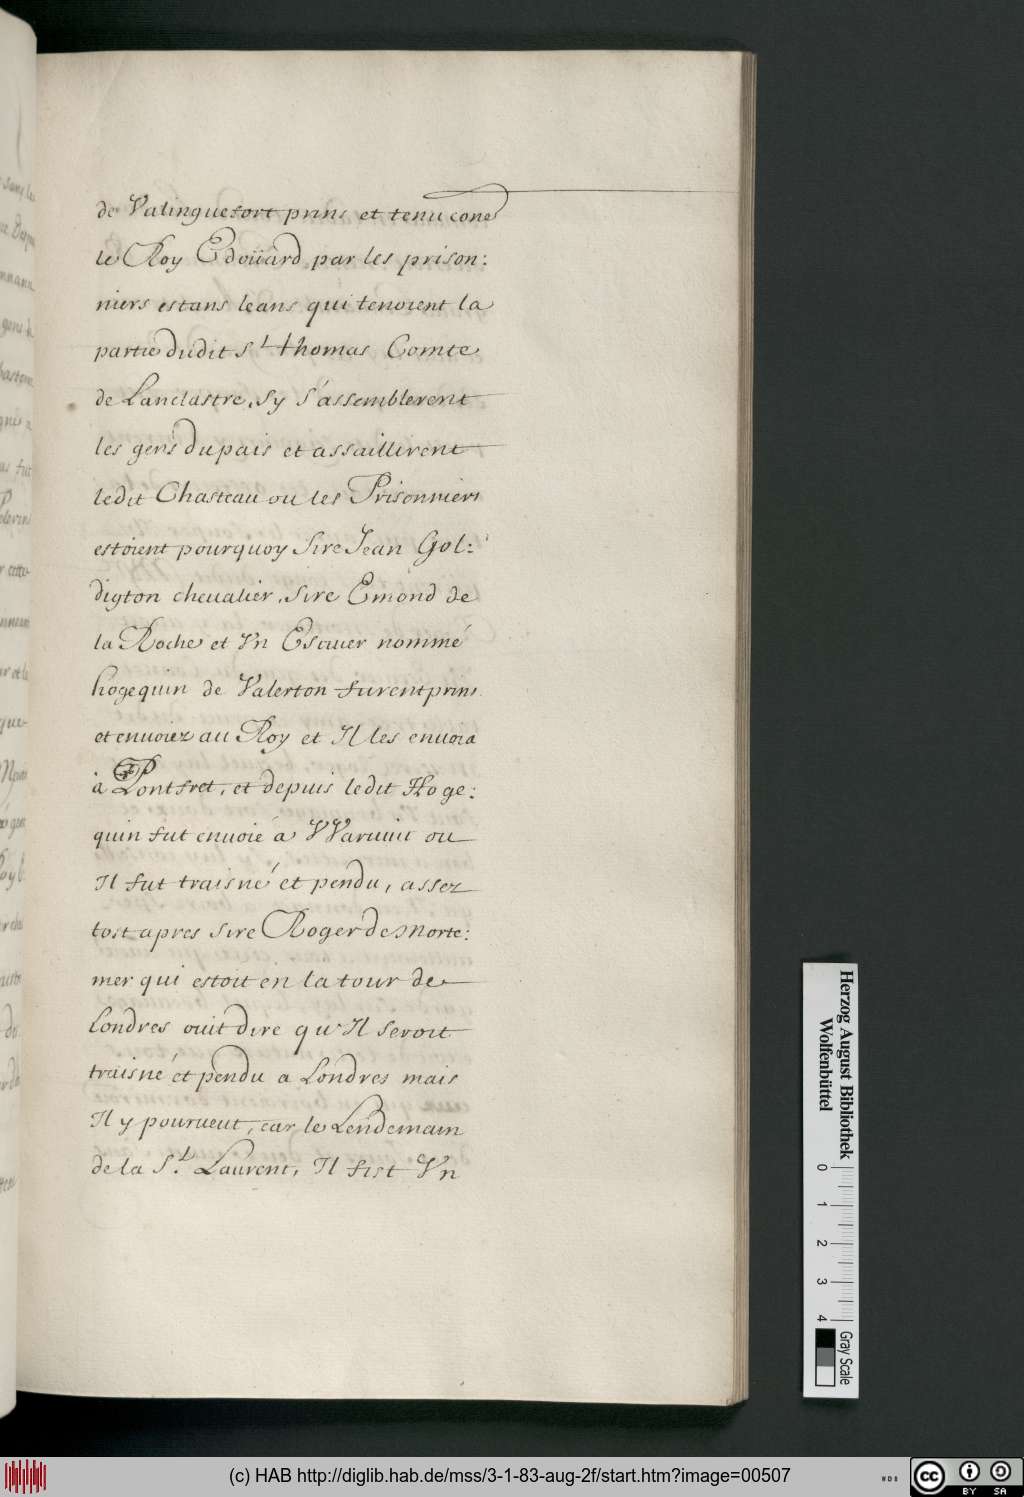 de Valinguefort prins et tenu cone
le Roy Edoüard par les prison:
niers estans leans qui tenoient la
partie dudit St thomas Comte
de Lanclastre, sy s'assemblerent
les gens du pais et assaillirent
ledit Chasteau ou les Prisonniers
estoient pourquoy Sire Jean Gol:
digton chevalier, Sire Emond de
la Roche et Vn Escuier nommé
hogequin de Valerton furent prins
et envoiez au Roy et Il les envoia
à Pontfret, et depuis ledit Hoge:
quin fut envoié a VVarwit ou
Il fut traisné et pendu, assez
tost apres Sire Roger de Morte:
mer qui estoit en la tour de
Londres ouit dire qu'Il seroit
traisné et pendu a Londres mais
Il y pourveut, car le Lendemain
de la St. Laurent, Il fist Vn
Herzog August Bibliothek
Wolfenbüttel
0 1 2 3 4
Gray Scale
(c) HAB http://diglib.hab.de/mss/3-1-83-aug-2f/start.htm?image=00507
WDB
cc BY SA